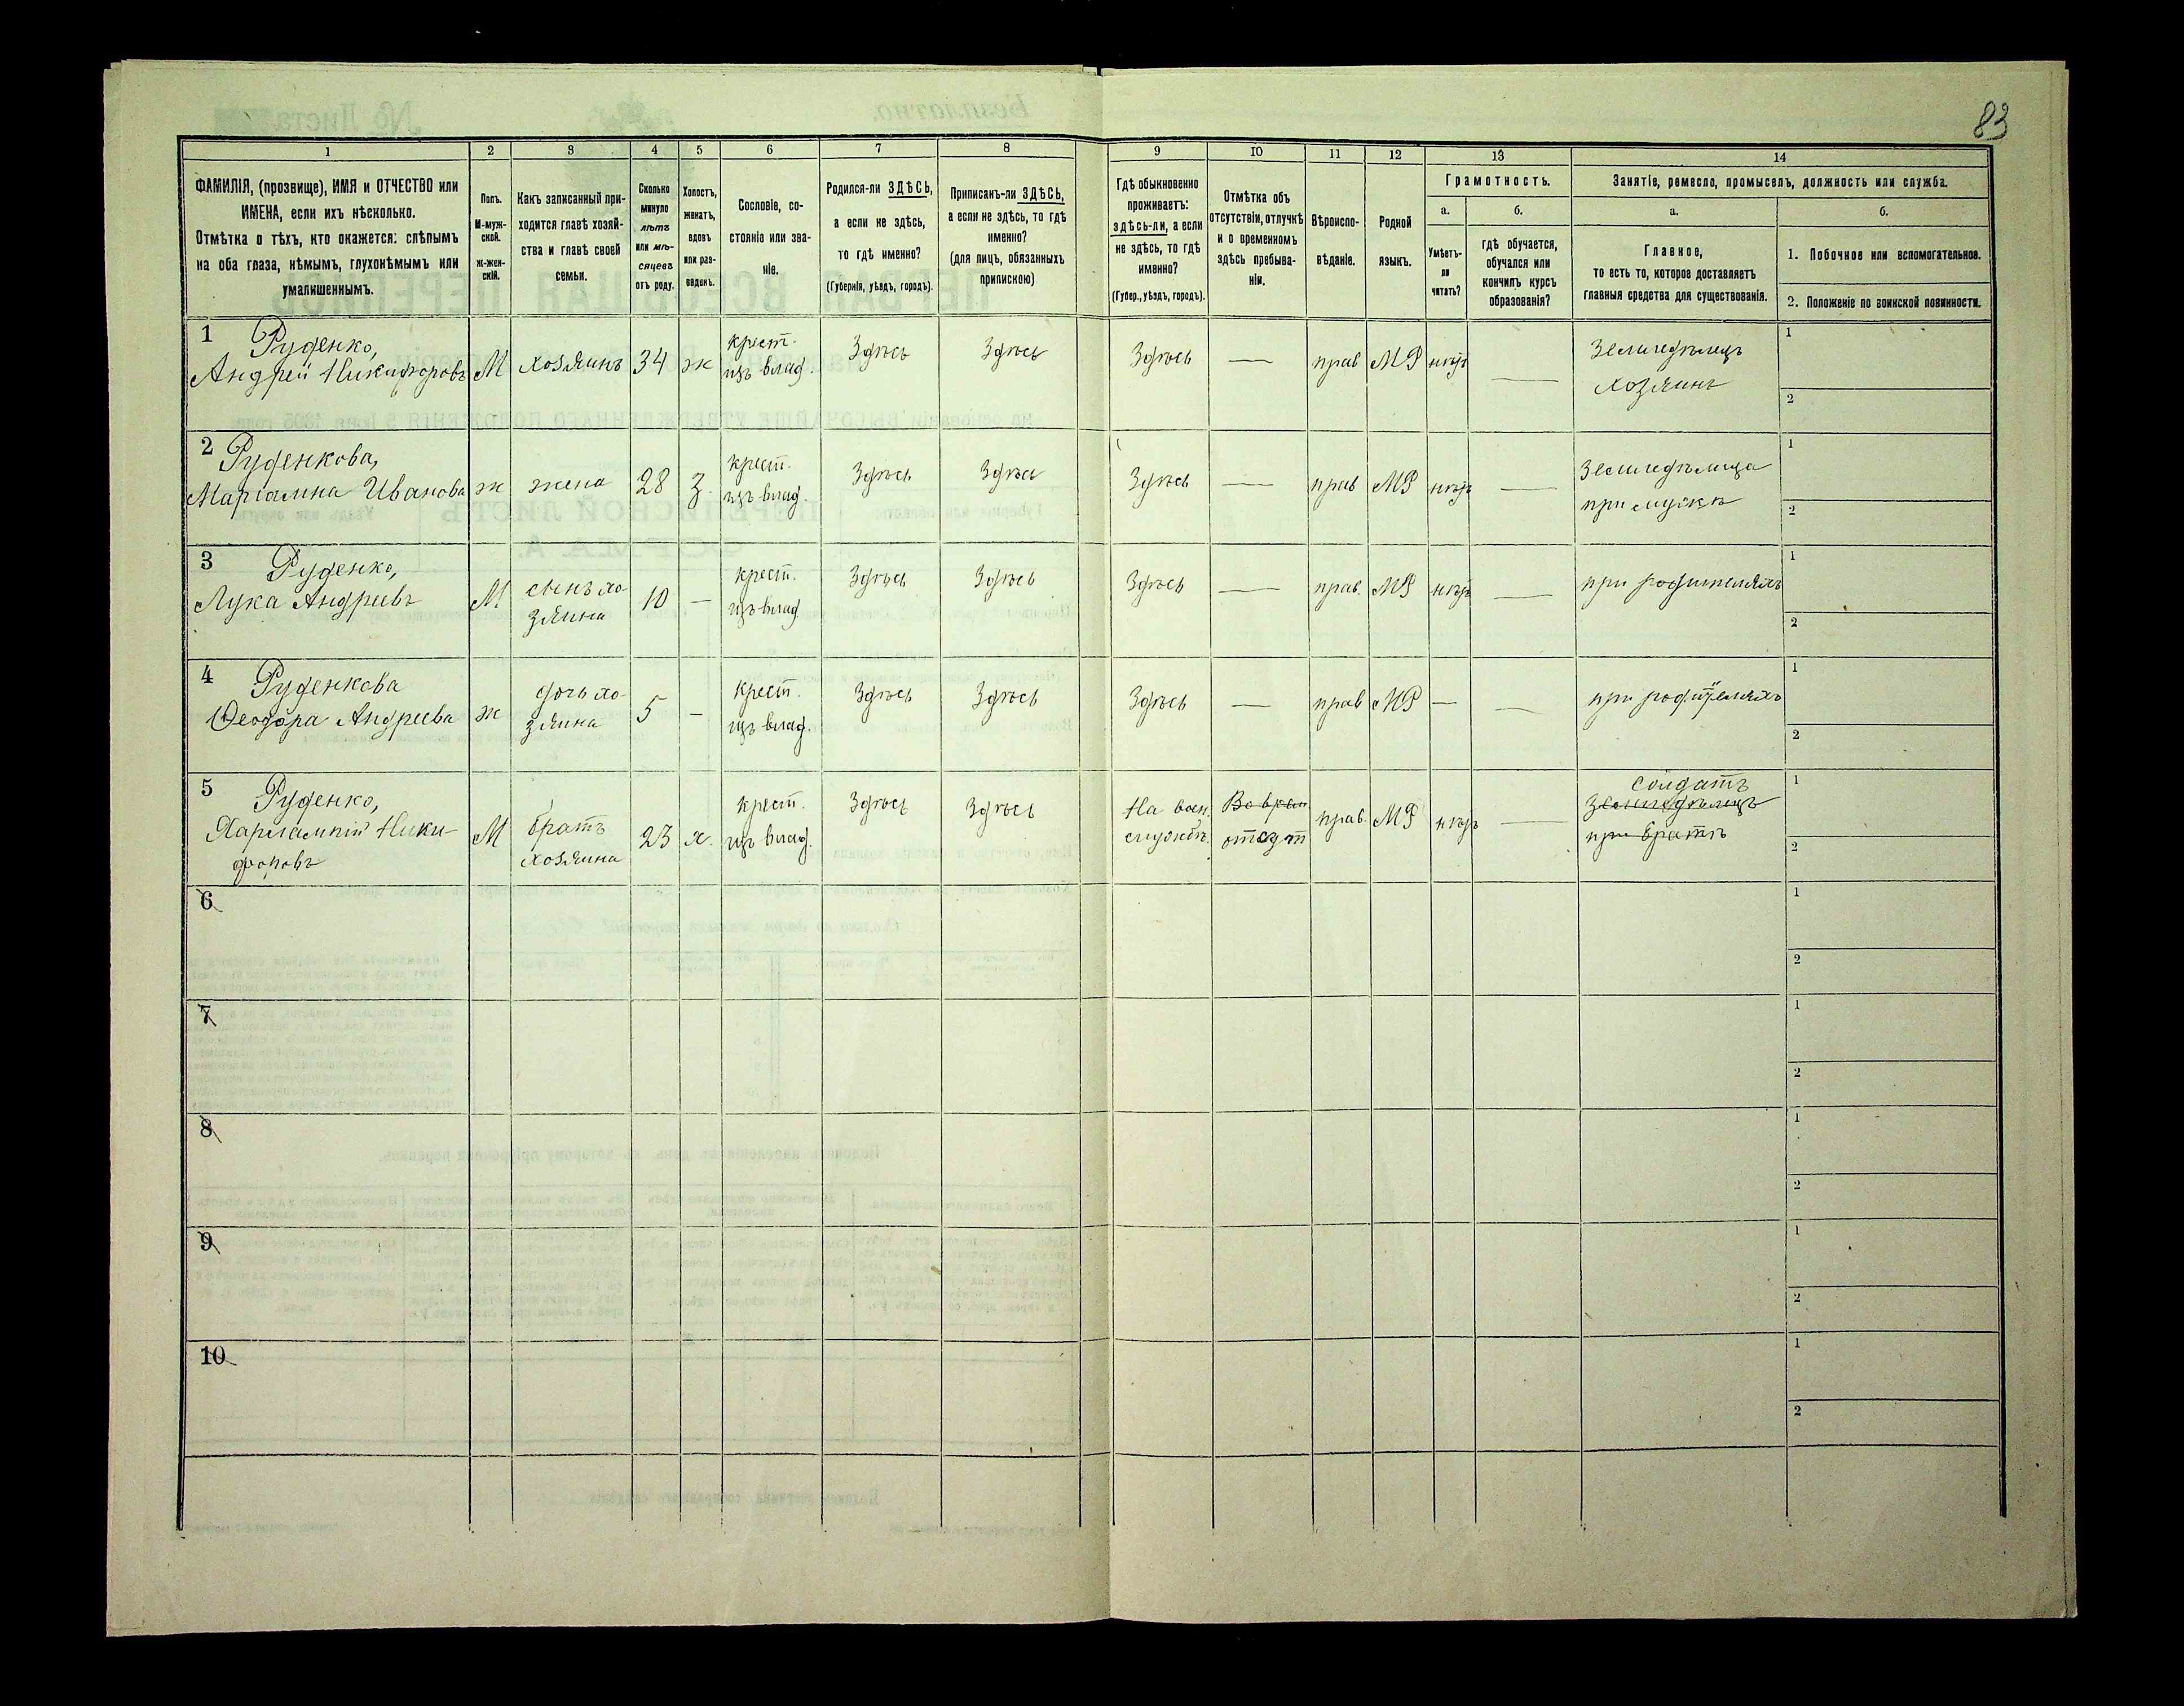 83
1 2 3 4 5 6 7 8 9 10 11 12 13 14
ФАМИЛІЯ, (прозвище), ИМЯ и ОТЧЕСТВО или
ИМЕНА, если ихъ нѣсколько.
Отмѣтка о тѣхъ, кто окажется: слѣпымъ
на оба глаза, нѣмымъ, глухонѣмымъ или
умалишеннымъ.
Полъ.
М-муж-
ской.
ж-жен-
скій.
Какъ записанный при-
ходится главѣ хозяй-
ства и главѣ своей
семьи.
Сколько
минуло
лѣтъ
или мѣ-
сяцевъ
отъ роду.
Холостъ,
женатъ,
вдовъ
или раз-
веденъ.
Сословіе, со-
стояніе или зва-
ніе.
Родился-ли ЗДѢСЬ,
а если не здѣсь,
то гдѣ именно?
(Губернія, уѣздъ, городъ).
Приписанъ-ли ЗДѢСЬ,
а если не здѣсь, то гдѣ
именно?
(для лицъ, обязанныхъ
припискою)
Гдѣ обыкновенно
проживаетъ:
здѣсь-ли, а если
не здѣсь, то гдѣ
именно?
(Губер., уѣздъ, городъ).
Отмѣтка объ
отсутствіи, отлучкѣ
и о временномъ
здѣсь пребыва-
ніи.
Вѣроиспо-
вѣданіе.
Родной
языкъ.
Грамотность.
а. б.
Умѣетъ-
ли
читать?
гдѣ обучается,
обучался или
кончилъ курсъ
образованія?
Занятіе, ремесло, промыселъ, должность или служба.
а. б.
Главное,
то есть то, которое доставляетъ
главныя средства для существованія.
1. Побочное или вспомогательное.
2. Положеніе по воинской повинности.
1 Руденко,
Андрей Никифоровъ М хозяинъ 34 ж крест. изъ влад. Здѣсь Здѣсь Здѣсь — прав МР нѣтъ — Земледѣлецъ
хозяинъ
1
2
2 Руденкова,
Маріамна Иванова ж жена 28 з. крест. изъ влад. Здѣсь Здѣсь Здѣсь — прав МР нѣтъ — Земледѣлица
при мужѣ
1
2
3 Руденко,
Лука Андреевъ М сынъ хо-
зяина 10 — крест. изъ влад. Здѣсь Здѣсь Здѣсь — прав. МР нѣтъ — при родителяхъ
1
2
4 Руденкова
Ѳеодора Андреева ж дочь хо-
зяина 5 — крест. изъ влад. Здѣсь Здѣсь Здѣсь — прав МР — — при родителяхъ
1
2
5 Руденко,
Харлампій Ники-
форовъ М братъ
хозяина 23 х. крест. изъ влад. Здѣсь Здѣсь На воен.
службѣ. прав. МР нѣтъ — солдатъ
Земледѣлецъ
при братѣ
1
2
6
1
2
7
1
2
8
1
2
9
1
2
10
1
2